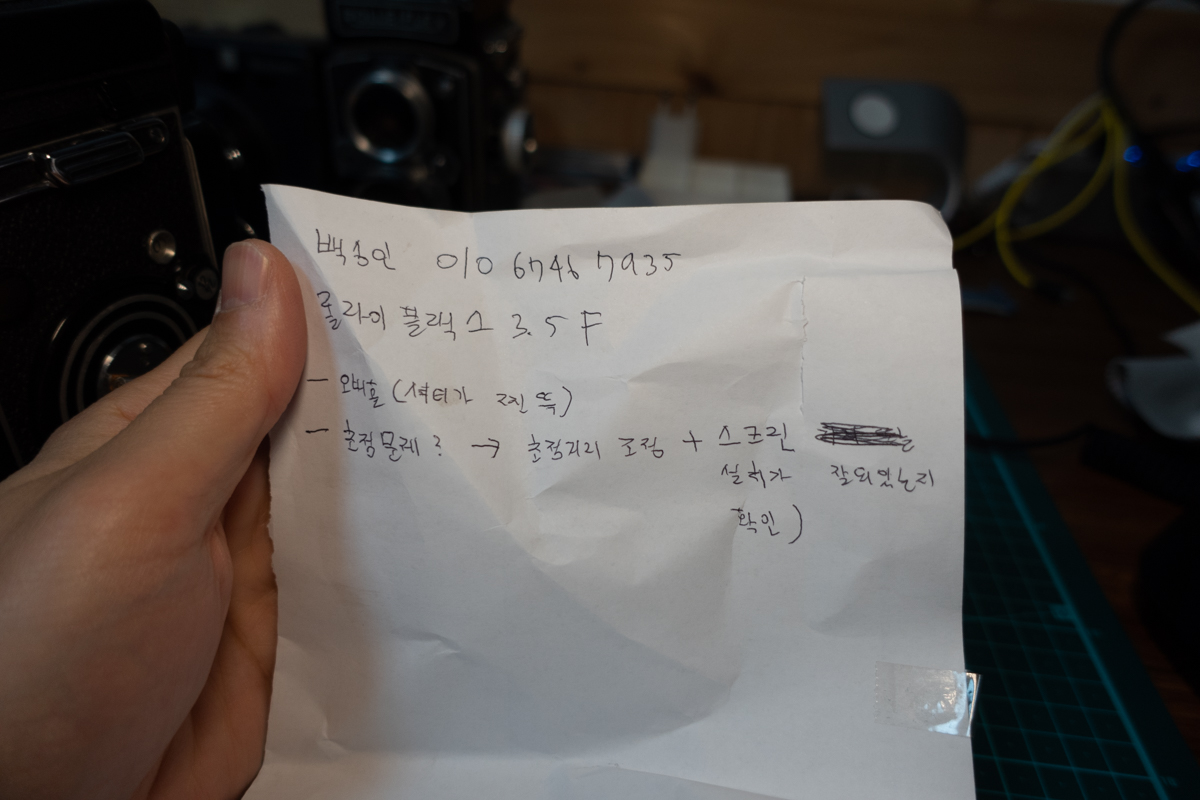 백승인 010 6746 7935
롤라이 플렉스 3.5 F
- 오버홀 (셔터가 끈쩍)
- 초점문제? → 초점거리 조정 + 스크린
설치가 잘되었는지
확인)